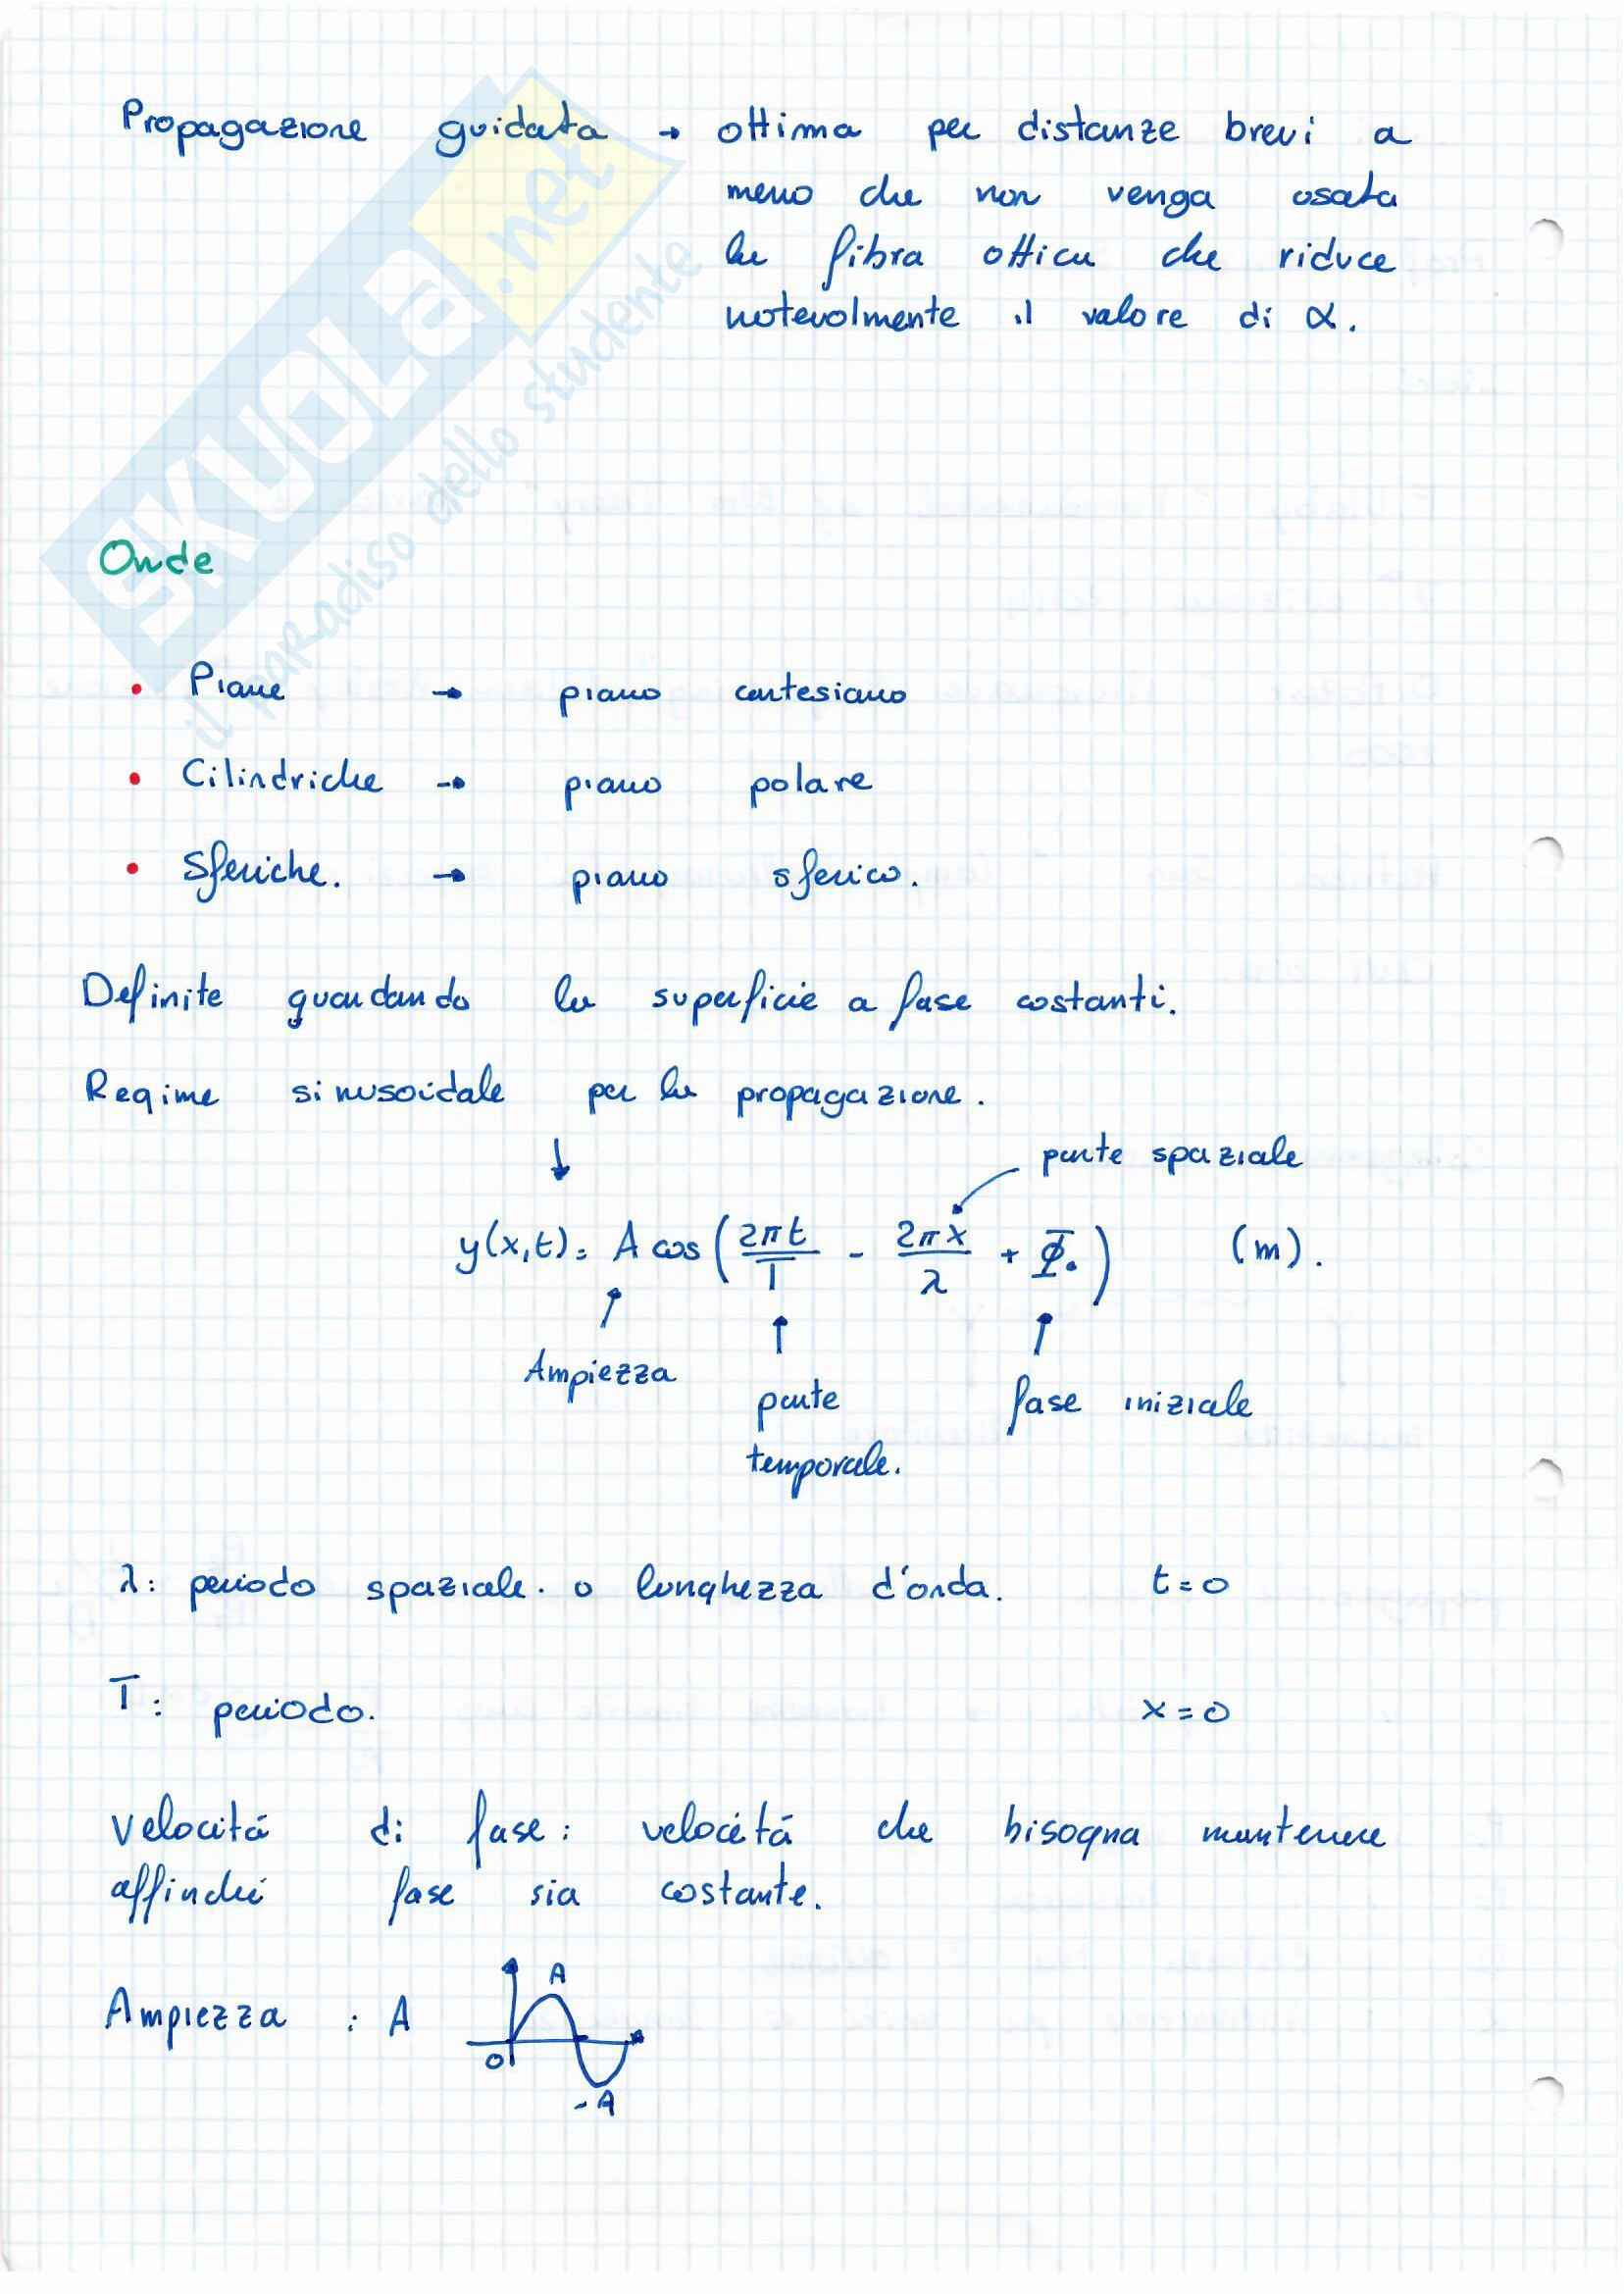 Propagazione guidata → ottima per distanze brevi a
meno che non venga usata
la fibra ottica che riduce
notevolmente il valore di α.
SKUOLA.net
il paradiso dello studente
Onde
• Piane → piano cartesiano
• Cilindriche → piano polare
• Sferiche. → piano sferico.
Definite guardando la superficie a fase costanti.
Regime sinusoidale per la propagazione.
↓
parte spaziale
y(x,t) = A cos(2πt/T - 2πx/λ + Φ₀) (m).
Ampiezza
parte
temporale.
fase iniziale
λ: periodo spaziale. o lunghezza d'onda. t=0
T: periodo. x=0
Velocitá di fase: velocitá che bisogna mantenere
affinché fase sia costante.
Ampiezza : A
A
0
-A